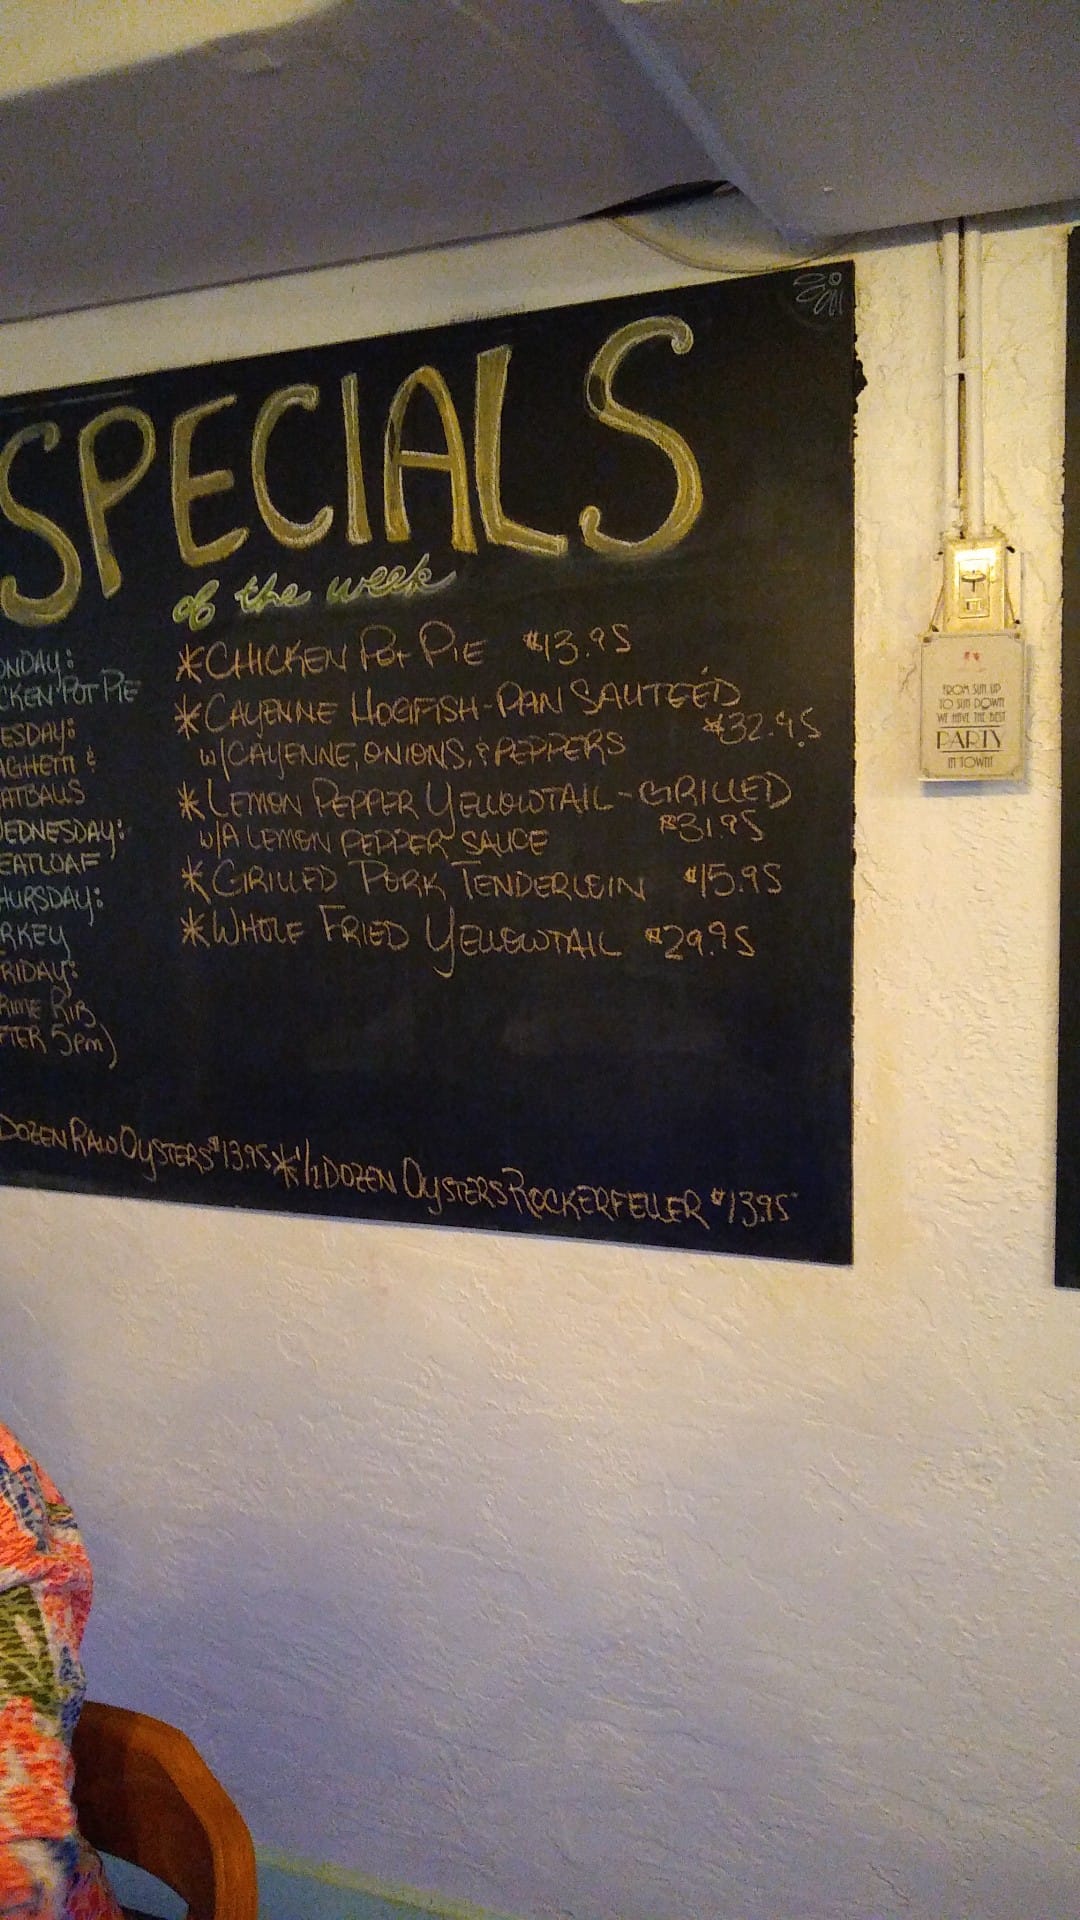 SPECIALS
of the week
ONDAY:
CKEN POT PIE
ESDAY:
AGHETTI &
EATBALLS
WEDNESDAY:
EATLOAF
HURSDAY:
RKEY
RIDAY:
RIME RIB
FTER 5PM)
*CHICKEN POT PIE $13.95
*CAYENNE HOGFISH-PAN SAUTEÉD
W/CAYENNE, ONIONS, & PEPPERS $32.95
*LEMON PEPPER YELLOWTAIL-GRILLED
W/A LEMON PEPPER SAUCE $31.95
*GRILLED PORK TENDERLEIN $15.95
*WHOLE FRIED YELLOWTAIL $29.95
DOZEN RAW OYSTERS $13.95 *1/2 DOZEN OYSTERS ROCKERFELLER $13.95
FROM SUN UP
TO SUN DOWN
WE HAVE THE BEST
PARTY
IN TOWN!